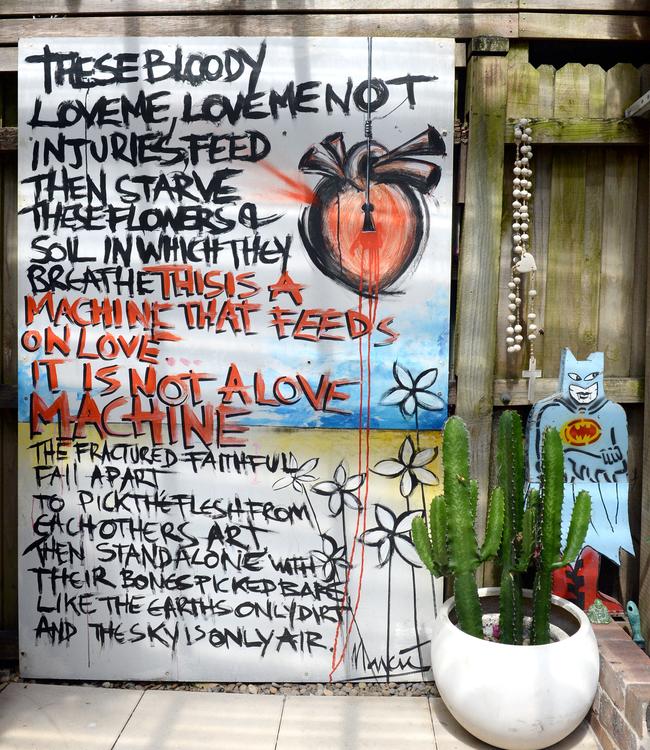 THESE BLOODY
LOVE ME, LOVE ME NOT
INJURIES, FEED
THEN STARVE
THESE FLOWERS &
SOIL IN WHICH THEY
BREATHE THIS IS A
MACHINE THAT FEEDS
ON LOVE
IT IS NOT A LOVE
MACHINE
THE FRACTURED FAITHFUL
FALL APART
TO PICK THE FLESH FROM
EACHOTHERS ART
THEN STAND ALONE WITH
THEIR BONES PICKED BARE
LIKE THE EARTHS ONLY DIRT
AND THE SKY IS ONLY AIR.